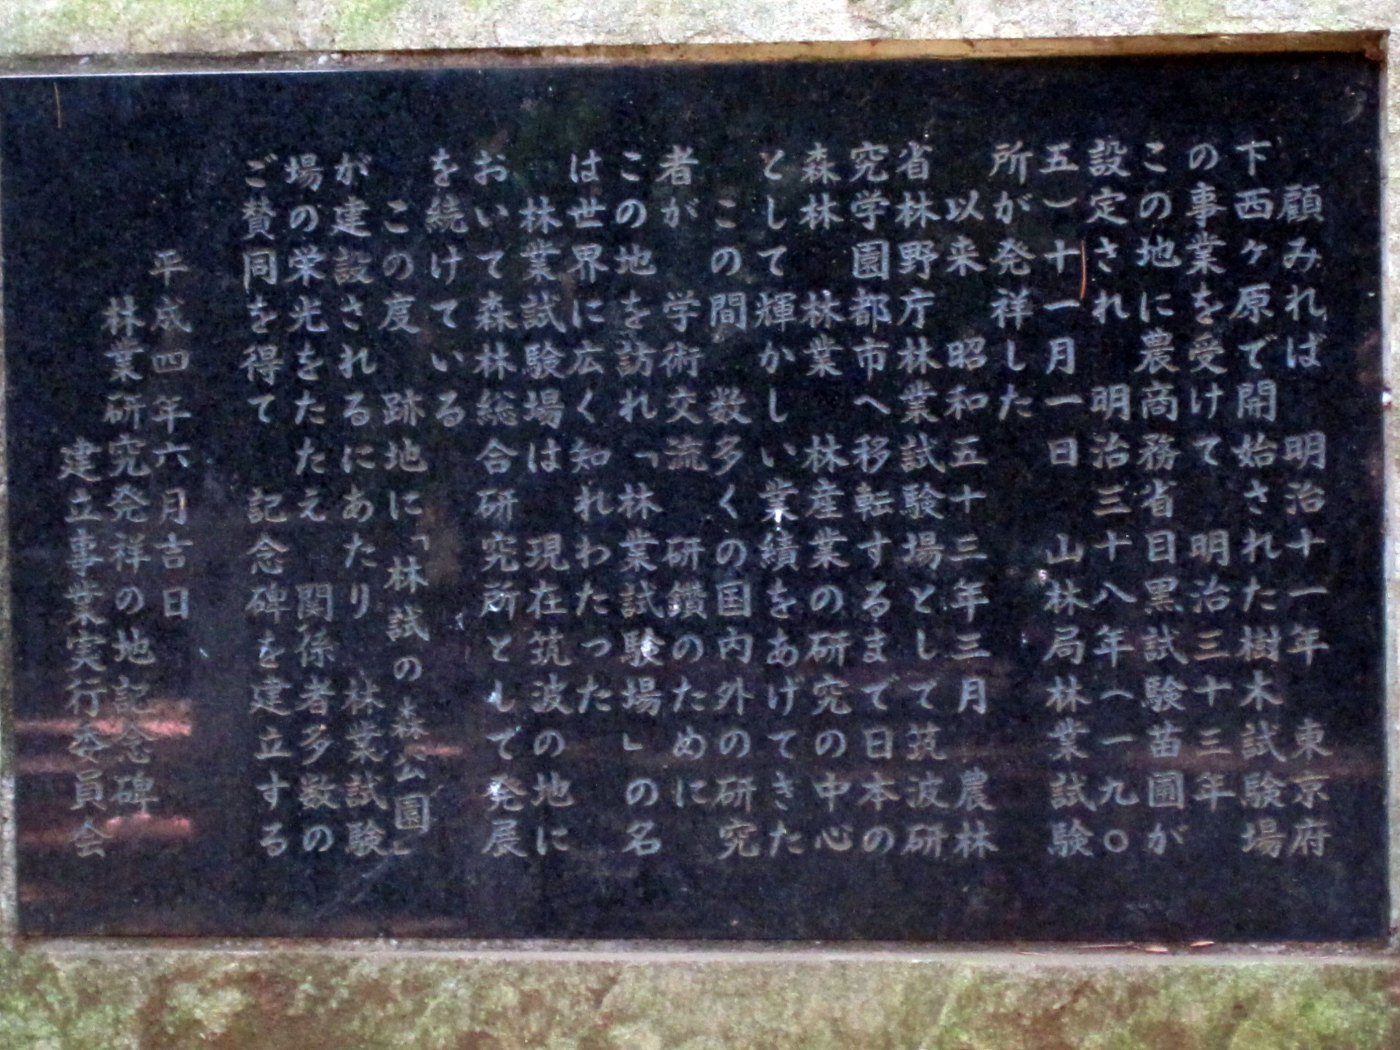 顧みれば　明治十一年　東京府
下西ヶ原で開始された樹木試験場
の事業を受けて　明治三十三年
この地に農商務省目黒試験苗圃が
設定され　明治三十八年（一九〇
五）十一月一日　山林局林業試験
所が発祥した
以来　昭和五十三年三月　農林
省林野庁林業試験場として筑波研
究学園都市へ移転するまで日本の
森林　林業　林産業の研究の中心
として輝かしい業績をあげてきた
この間　数多くの国内外の研究
者が　学術交流　研鑽のために
この地を訪れ「林業試験場」の名
は世界に広く知れわたった
林業試験場は　現在筑波の地に
おいて森林総合研究所として発展
を続けている
この度　跡地に「林試の森公園」
が建設されるにあたり　林業試験
場の栄光をたたえ　関係者多数の
ご賛同を得て　記念碑を建立する
平成四年六月吉日
林業研究発祥の地記念碑
建立事業実行委員会